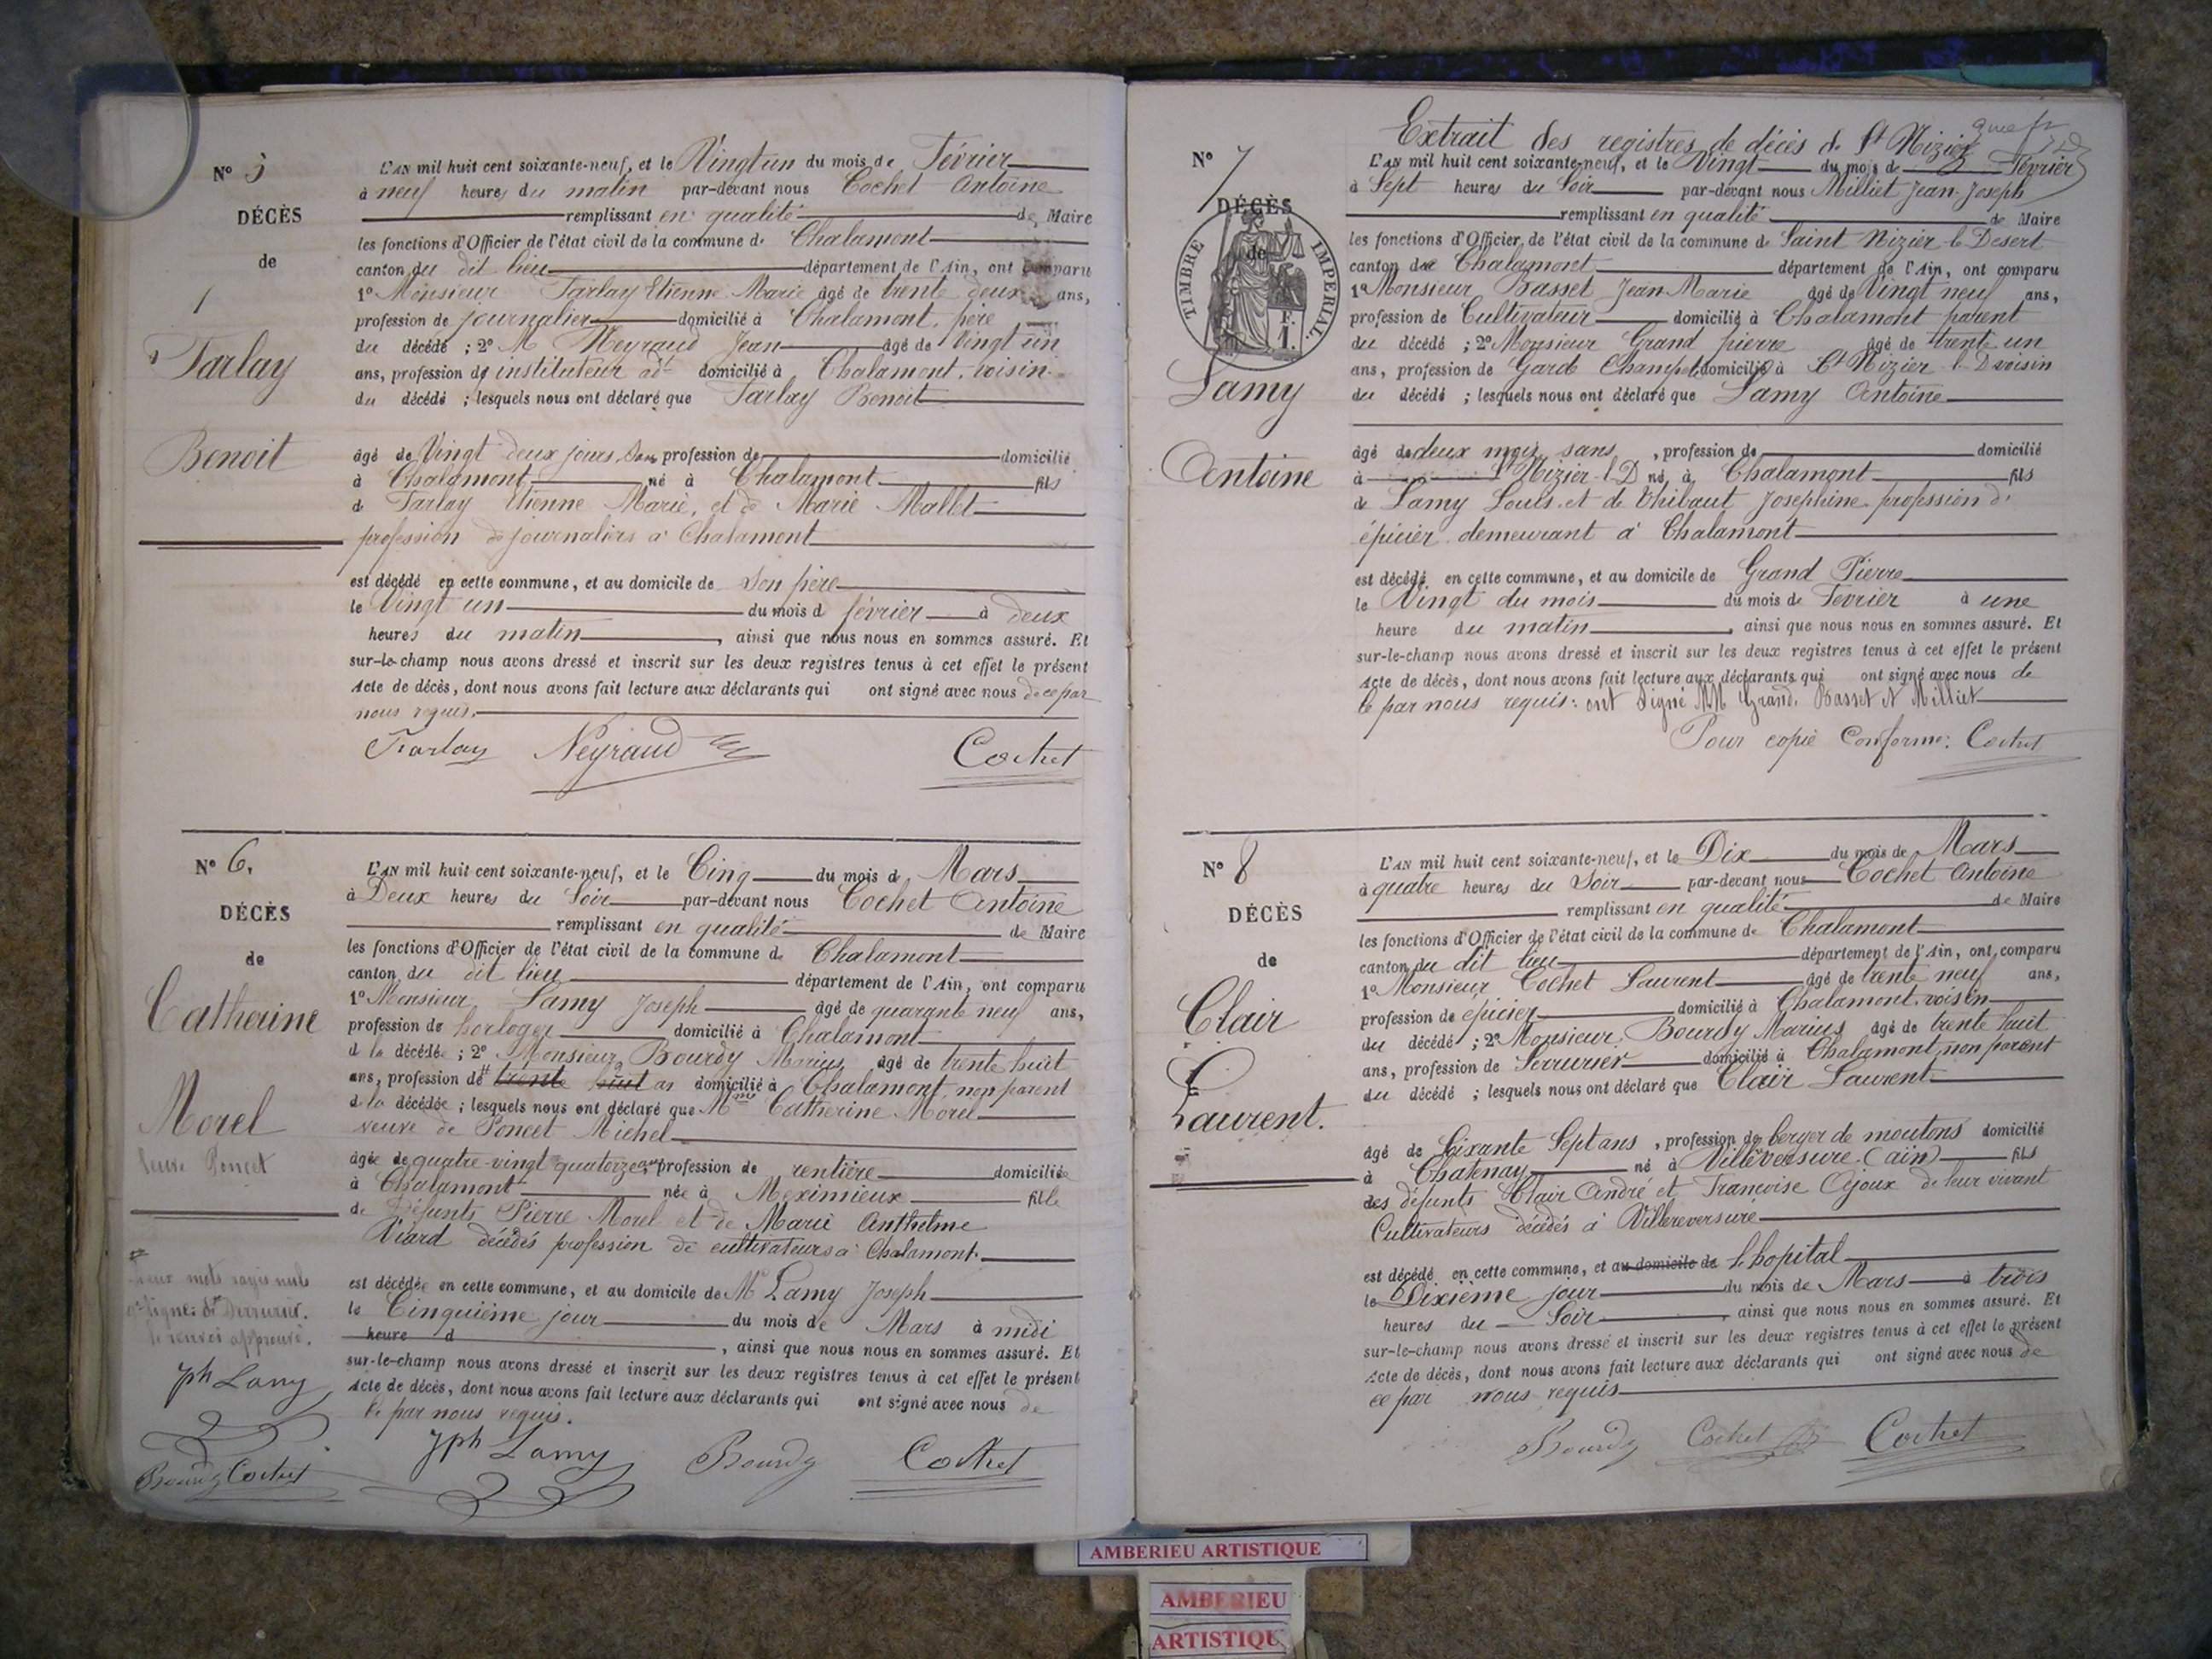 N° 5
DÉCÈS
de
Tarlay
Benoit
L'AN mil huit cent soixante-neuf, et le Vingt un du mois de Février
à neuf heures du matin par-devant nous Cochet Antoine
remplissant en qualité de Maire
les fonctions d'Officier de l'état civil de la commune de Chalamont
canton du dit lieu département de l'Ain, ont comparu
1° Monsieur Tarlay Etienne Marie âgé de trente deux ans,
profession de journalier domicilié à Chalamont, père
du décédé ; 2° M Neyraud Jean âgé de Vingt un
ans, profession de instituteur adt domicilié à Chalamont, voisin
du décédé ; lesquels nous ont déclaré que Tarlay Benoit
âgé de Vingt deux jours, sans profession de domicilié
à Chalamont né à Chalamont fils
de Tarlay Etienne Marie, et de Marie Mallet
profession de journaliers à Chalamont
est décédé en cette commune, et au domicile de Son père
le Vingt un du mois de février à deux
heures du matin, ainsi que nous nous en sommes assuré. Et
sur-le-champ nous avons dressé et inscrit sur les deux registres tenus à cet effet le présent
Acte de décès, dont nous avons fait lecture aux déclarants qui ont signé avec nous de ce par
nous requis.
Tarlay Neyraud Cochet
N° 6.
DÉCÈS
de
Catherine
Morel
Veuve Poncet
L'AN mil huit cent soixante-neuf, et le Cinq du mois de Mars
à Deux heures du Soir par-devant nous Cochet Antoine
remplissant en qualité de Maire
les fonctions d'Officier de l'état civil de la commune de Chalamont
canton du dit lieu département de l'Ain, ont comparu
1° Monsieur Lamy Joseph âgé de quarante neuf ans,
profession de horloger domicilié à Chalamont
de la décédée ; 2° Monsieur Bourdy Marius âgé de trente huit
ans, profession de trente huit ans domicilié à Chalamont, non parent
de la décédée ; lesquels nous ont déclaré que Mme Catherine Morel
veuve de Poncet Michel
âgée de quatre-vingt quatorze ans profession de rentière domiciliée
à Chalamont née à Meximieux fille
de défunts Pierre Morel et de Marie Anthelme
Viard décédés profession de cultivateurs à Chalamont.
est décédée en cette commune, et au domicile de Mr Lamy Joseph
le Cinquième jour du mois de Mars à midi
heure d, ainsi que nous nous en sommes assuré. Et
sur-le-champ nous avons dressé et inscrit sur les deux registres tenus à cet effet le présent
Acte de décès, dont nous avons fait lecture aux déclarants qui ont signé avec nous de
ce par nous requis.
Jph Lamy Bourdy Cochet
mots rayés nuls
le renvoi approuvé.
Jph Lamy
Bourdy Cochet
Extrait des registres de décès de St Nizier
N° 7
DÉCÈS
de
TIMBRE IMPERIAL.
F.
1.
Lamy
Antoine
L'AN mil huit cent soixante-neuf, et le Vingt du mois de Février
à Sept heures du Soir par-devant nous Milliet Jean-Joseph
remplissant en qualité de Maire
les fonctions d'Officier de l'état civil de la commune de Saint Nizier le Desert
canton de Chalamont département de l'Ain, ont comparu
1° Monsieur Basset Jean Marie âgé de Vingt neuf ans,
profession de Cultivateur domicilié à Chalamont parent
du décédé ; 2° Monsieur Grand pierre âgé de trente un
ans, profession de Garde Champet domicilié à St Nizier le D voisin
du décédé ; lesquels nous ont déclaré que Lamy Antoine
âgé de deux mois sans, profession de domicilié
à St Nizier-l-D né à Chalamont fils
de Lamy Louis et de Thibaut Josephine profession d'
épicier demeurant à Chalamont
est décédé en cette commune, et au domicile de Grand Pierre
le Vingt du mois du mois de Fevrier à une
heure du matin, ainsi que nous nous en sommes assuré. Et
sur-le-champ nous avons dressé et inscrit sur les deux registres tenus à cet effet le présent
Acte de décès, dont nous avons fait lecture aux déclarants qui ont signé avec nous de
ce par nous requis: ont Signé MM Grand, Basset et Milliet
Pour copie Conforme: Cochet
N° 8
DÉCÈS
de
Clair
Laurent.
L'AN mil huit cent soixante-neuf, et le Dix du mois de Mars
à quatre heures du Soir par-devant nous Cochet Antoine
remplissant en qualité de Maire
les fonctions d'Officier de l'état civil de la commune de Chalamont
canton du dit lieu département de l'Ain, ont comparu
1° Monsieur Cochet Laurent âgé de trente neuf ans,
profession de épicier domicilié à Chalamont, voisin
du décédé ; 2° Monsieur Bourdy Marius âgé de trente huit
ans, profession de Serrurier domicilié à Chalamont, non parent
du décédé ; lesquels nous ont déclaré que Clair Laurent
âgé de Soixante Sept ans, profession de berger de moutons domicilié
à Chatenay né à Villereversure (ain) fils
des défunts Clair André et Francoise Ajoux de leur vivant
Cultivateurs décédés à Villereversure
est décédé en cette commune, et au domicile de l'hopital
le Dixième jour du mois de Mars à trois
heures du Soir, ainsi que nous nous en sommes assuré. Et
sur-le-champ nous avons dressé et inscrit sur les deux registres tenus à cet effet le présent
Acte de décès, dont nous avons fait lecture aux déclarants qui ont signé avec nous de
ce par nous requis
Bourdy Cochet Cochet
AMBERIEU ARTISTIQUE
AMBERIEU
ARTISTIQU